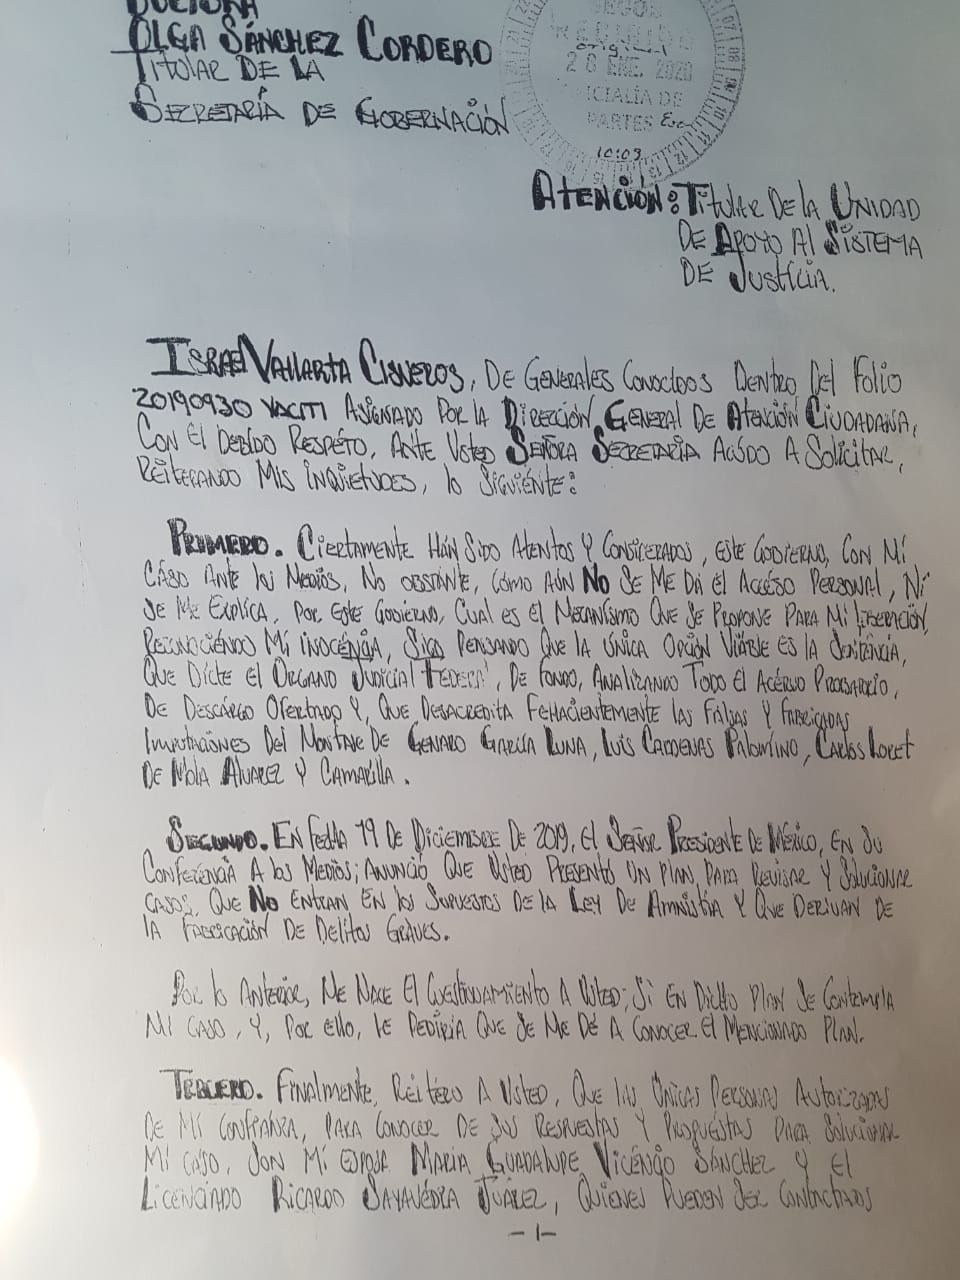 DOCTORA
OLGA SÁNCHEZ CORDERO
TITULAR DE LA
SECRETARÍA DE GOBERNACIÓN
SEGOB
RECIBIDO
original
28 ENE. 2020
OFICIALÍA DE
PARTES
10:03
ATENCIÓN: TITULAR DE LA UNIDAD
DE APOYO AL SISTEMA
DE JUSTICIA.
ISRAEL VALLARTA CISNEROS, DE GENERALES CONOCIDOS DENTRO DEL FOLIO
20190930 VACITI ASIGNADO POR LA DIRECCIÓN GENERAL DE ATENCIÓN CIUDADANA,
CON EL DEBIDO RESPÉTO, ANTE USTED SEÑORA SECRETARIA ACÚDO A SOLICITAR,
REITERANDO MIS INQUIETUDES, LO SIGUIÉNTE:
PRIMERO. CIERTAMENTE HÁN SIDO ATENTOS Y CONSIDERADOS, ESTE GOBIERNO, CON MÍ
CÁSO ANTE LOS MEDIOS, NO OBSTANTE, CÓMO AÚN NO SE ME DÁ EL ACCÉSO PERSONAL, NÍ
SE ME EXPLÍCA, POR ESTE GOBIERNO, CUAL ES EL MECANÍSMO QUE SE PROPONE PARA MÍ LIBERACIÓN,
RECONOCIÉNDO MÍ INOCÉNCIA, SIGO PENSANDO QUE LA ÚNICA OPCIÓN VIÁBLE ES LA SENTENCIA,
QUE DÍCTE EL ORGANO JUDICIAL FEDERAL, DE FONDO, ANALIZANDO TODO EL ACÉRVO PROBATORIO,
DE DESCÁRGO OFERTADO Y, QUE DESACREDITA FEHACIENTEMENTE LAS FÁLSAS Y FABRICADAS
IMPUTACIÓNES DEL MONTAJE DE GENARO GARCÍA LUNA, LUIS CARDENAS PALOMÍNO, CARLOS LORET
DE MOLA ALVAREZ Y CAMARILLA.
SEGUNDO. EN FECHA 19 DE DICIEMBRE DE 2019, EL SEÑOR PRESIDENTE DE MÉXICO, EN SU
CONFERÉNCIA A LOS MEDIOS; ANUNCIÓ QUE USTED PRESENTÓ UN PLAN, PARA REVISAR Y SOLUCIONAR
CASOS, QUE NO ENTRAN EN LOS SUPUESTOS DE LA LEY DE AMNISTÍA Y QUE DERIVAN DE
LA FABRICACIÓN DE DELITOS GRAVES.
POR LO ANTERIOR, ME NACE EL CUESTIONAMIENTO A USTED; SÍ EN DICHO PLAN SE CONTEMPLA
MI CASO, Y, POR ELLO, LE PEDIRÍA QUE SE ME DÉ A CONOCER EL MENCIONADO PLAN.
TERCERO. FINALMENTE, RÉITERO A USTED, QUE LAS ÚNICAS PERSONAS AUTORIZADAS
DE MÍ CONFIÁNZA, PARA CONOCER DE SUS RESPUESTAS Y PROPUÉSTAS PARA SOLUCIONAR
MI CASO, SON MÍ ESPOSA MARÍA GUADALUPE VICÉNCIO SÁNCHEZ Y EL
LICENCIADO RICARDO SAYAVÉDRA JUÁREZ, QUIÉNES PUEDEN SER CONTACTADOS
-1-